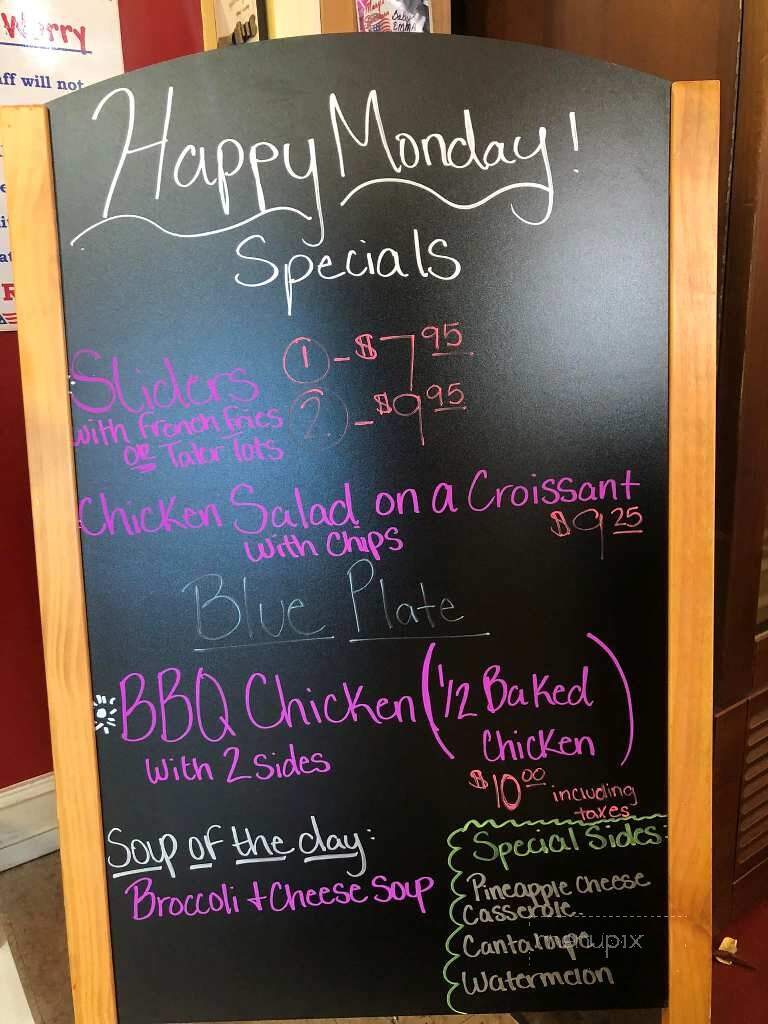 Worry
ff will not
Happy Monday!
Specials
Sliders
with French Fries
or Tator tots
1 - $7.95
2 - $9.95
Chicken Salad on a Croissant
with Chips
$9.25
Blue Plate
BBQ Chicken (1/2 Baked
Chicken)
with 2 sides
$10.00 including
taxes
Soup of the day:
Broccoli + Cheese Soup
Special Sides:
Pineapple Cheese
Casserole
Cantalope
Watermelon
menupix